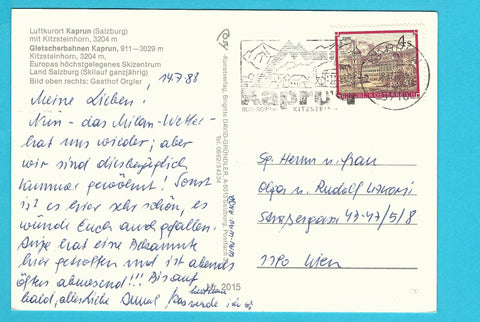 Luftkurort Kaprun (Salzburg)
mit Kitzsteinhorn, 3204 m
Gletscherbahnen Kaprun, 911–3029 m
Kitzsteinhorn, 3204 m,
Europas höchstgelegenes Skizentrum
Land Salzburg (Skilauf ganzjährig)
Bild oben rechts: Gasthof Orgler
14.7.88
Meine Lieben!
Nun - das Milan-Wetter
hat uns wieder; aber
wir sind diesbezüglich
Kummer gewöhnt! Sonst
ist es hier sehr schön, es
würde Euch auch gefallen.
hat eine Bekannte
hier getroffen und ist abends
öfters abwesend!!! Bis auf
bald, allerliebste
2015
Kunstverlag, Brigitte DAVID-GRÜNDLER, A-5017 Salzburg, Postfach
Tel. 0662/34334
Kaprun
KITZSTEIN
4
REPUBLIK ÖSTERREICH
Sp. Herrn u. Frau
Olga u. Rudolf
43-47/5/8
1190 Wien